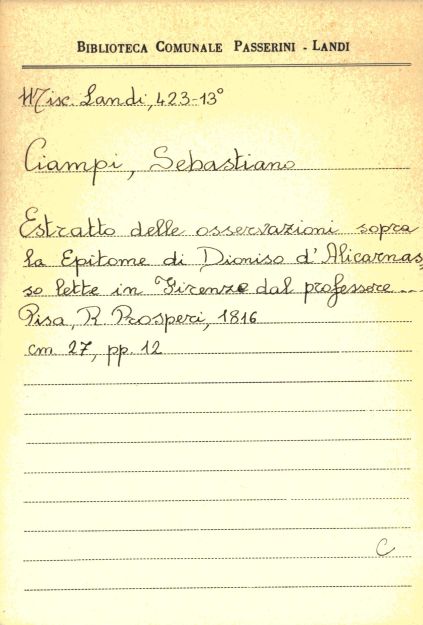 BIBLIOTECA COMUNALE PASSERINI - LANDI
Misc. Landi, 423-13°
Ciampi, Sebastiano
Estratto delle osservazioni sopra
la Epitome di Dioniso d'Alicarnas
so lette in Firenze dal professore ...
Pisa, R. Prosperi, 1816
cm. 27, pp. 12
C